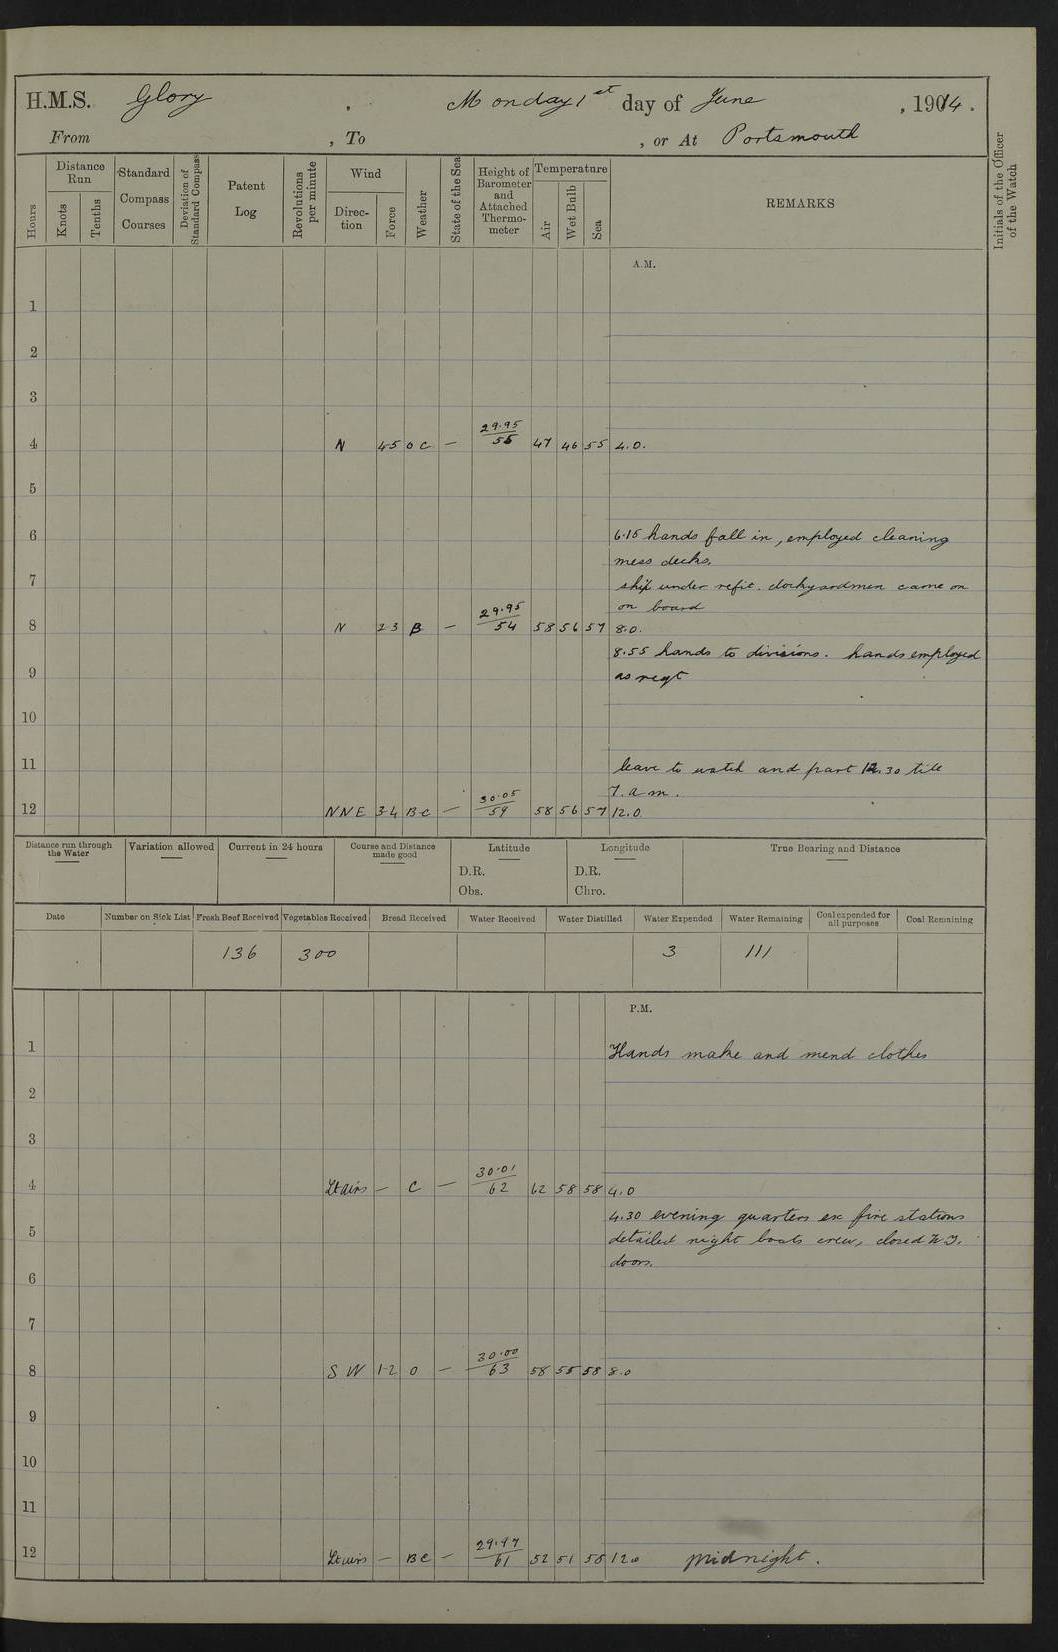 H.M.S. Glory , Monday 1st day of June , 1914.
From , To , or At Portsmouth
Hours
Distance Run
Knots
Tenths
Standard Compass Courses
Deviation of Standard Compass
Patent Log
Revolutions per minute
Wind
Direction
Force
Weather
State of the Sea
Height of Barometer and Attached Thermometer
Temperature
Air
Wet Bulb
Sea
REMARKS
Initials of the Officer of the Watch
A.M.
1
2
3
4 N 4-5 OC — 29.95/55 47 46 55 4.0.
5
6 6.15 hands fall in, employed cleaning
mess decks.
7 ship under refit. dockyardmen came on
on board
8 N 2 3 B — 29.95/54 58 56 57 8.0.
8.55 hands to divisions. hands employed
9 as reqt
10
11 leave to watch and part 12.30 till
7. a m.
12 NNE 3-4 BC — 30.05/59 58 56 57 12.0
Distance run through the Water
Variation allowed
Current in 24 hours
Course and Distance made good
Latitude
D.R.
Obs.
Longitude
D.R.
Chro.
True Bearing and Distance
Date
Number on Sick List
Fresh Beef Received
Vegetables Received
Bread Received
Water Received
Water Distilled
Water Expended
Water Remaining
Coal expended for all purposes
Coal Remaining
136 300 3 111
P.M.
1 Hands make and mend clothes
2
3
4 Lt airs — C — 30.01/62 62 58 58 4.0
4.30 evening quarters ex fire stations
5 detailed night boats crew, closed W.T.
doors.
6
7
8 S W 1-2 O — 30.00/63 58 55 58 8.0
9
10
11
12 Lt airs — BC — 29.97/61 52 51 58 12.0 midnight.